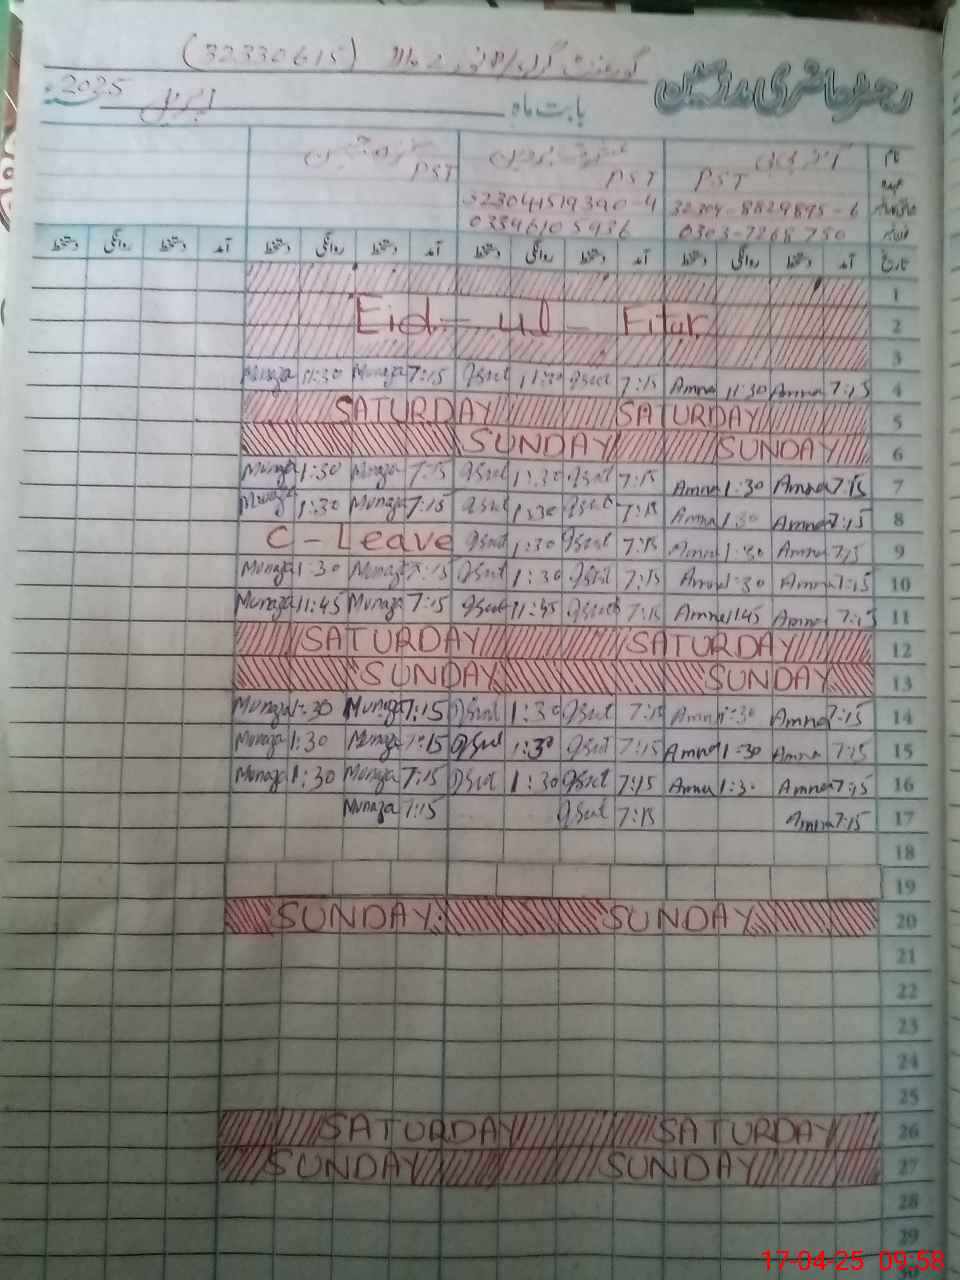 رجسٹر حاضری مدرسین گورنمنٹ گرلز (32330615)
بابت ماہ اپریل 2025
نام
عہدہ PST PST PST
32304-8829895-6 323041519390-4
0303-7268750 03346105936
تاریخ آمد دستخط روانگی دستخط آمد دستخط روانگی دستخط آمد دستخط روانگی دستخط آمد دستخط روانگی دستخط
1
2 Eid-ul-Fitar
3
4 7:15 Amna 11:30 Amna 7:15 11:30 7:15 Munaza 11:30 Munaza
5 SATURDAY SATURDAY
6 SUNDAY SUNDAY
7 7:15 Amna 1:30 Amna 7:15 1:30 7:15 Munaza 1:30 Munaza
8 7:15 Amna 1:30 Amna 7:15 1:30 7:15 Munaza 1:30 Munaza
9 7:15 Amna 1:30 Amna 7:15 1:30 C-Leave
10 7:15 Amna 1:30 Amna 7:15 1:30 7:15 Munaza 1:30 Munaza
11 7:15 Amna 11:45 Amna 7:15 11:45 7:15 Munaza 11:45 Munaza
12 SATURDAY SATURDAY
13 SUNDAY SUNDAY
14 7:15 Amna 1:30 Amna 7:15 1:30 7:15 Munaza 1:30 Munaza
15 7:15 Amna 1:30 Amna 7:15 1:30 7:15 Munaza 1:30 Munaza
16 7:15 Amna 1:30 Amna 7:15 1:30 7:15 Munaza 1:30 Munaza
17 7:15 Amna 7:15 7:15 Munaza
18
19
20 SUNDAY SUNDAY
21
22
23
24
25
26 SATURDAY SATURDAY
27 SUNDAY SUNDAY
28
29
17-04-25 09:58